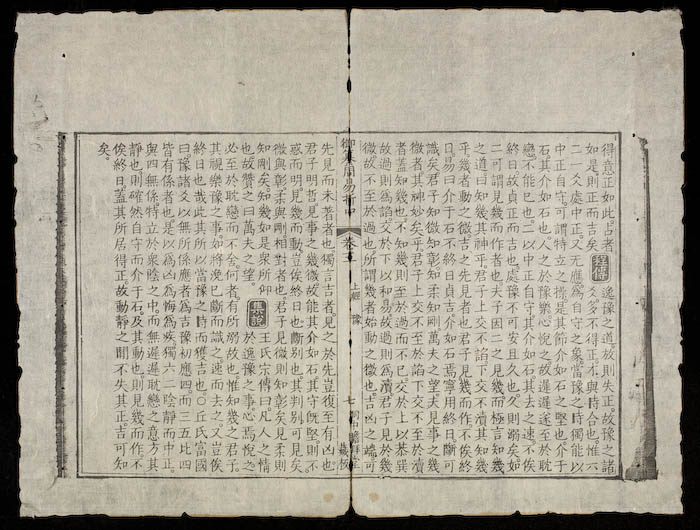 得意正如此占者 程傳 逸豫之道放則失正故豫之諸
如是則正而吉矣 爻多不得正不與時合也惟六
二一爻處中正又无應爲自守之象當豫之時獨能以
中正自守可謂特立之操是其節介如石之堅也介于
石其介如石也人之於豫樂心悅之故遲遲遂至於耽
戀不能已也二以中正自守其介如石其去之速不俟
終日故貞正而吉也處豫不可安且久也久則溺矣如
二可謂見幾而作者也夫子因二之見幾而極言知幾
之道曰知幾其神乎君子上交不諂下交不瀆其知幾
乎幾者動之微吉之先見者也君子見幾而作不俟終
日易曰介于石不終日貞吉介如石焉寧用終日斷可
識矣君子知微知彰知柔知剛萬夫之望夫見事之幾
微者其神妙矣乎君子上交不至於諂下交不至於瀆
者蓋知幾也不知幾則至於過而不已交於上以恭巽
故過則爲諂交於下以和易故過則爲瀆君子見於幾
微故不至於過也所謂幾者始動之微也吉凶之端可
御纂周易折中 卷三 上經 豫 七
先見而未著者也獨言吉者見之於先豈復至有凶也
君子明哲見事之幾微故能其介如石其守既堅則不
惑而明見幾而動豈俟終日也斷別也其判別可見矣
微與彰柔與剛相對者也君子見微則知彰矣見柔則
知剛矣知幾如是衆所仰 集說 王氏宗傳曰凡人之情
也故贊之曰萬夫之望 於逸豫之事心焉悅之
必至於耽戀而不舍何者有所溺故也惟知幾之君子
其視樂豫之事如將浼己斷而識之速而去之又豈俟
終日也哉此其所以當豫之時而獲吉也○丘氏富國
曰豫諸爻以无所係應者爲吉豫初應四而三五比四
皆有係者也是以爲凶爲悔爲疾獨六二陰靜而中正
與四無係特立於衆陰之中而無遲遲耽戀之意方其
靜也則確然自守而介于石及其動也則見幾而作不
俟終日蓋其所居得正故動靜之間不失其正吉可知
矣